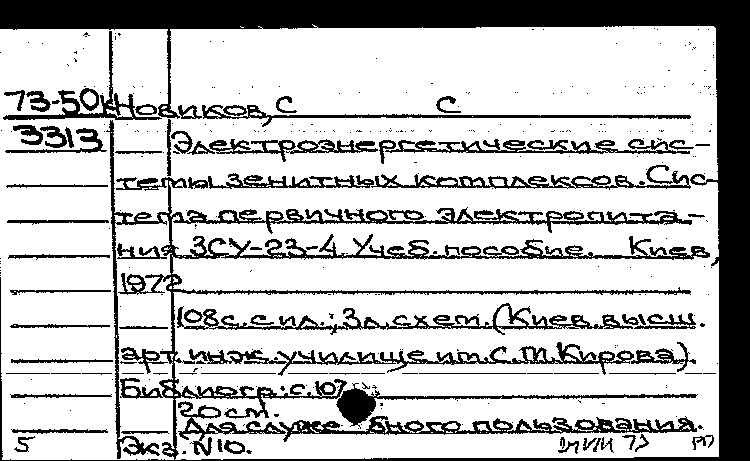 73-50к Новиков, С С
3313 Электроэнергетические сис-
темы зенитных комплексов. Сис-
тема первичного электропита-
ния ЗСУ-23-4 Учеб. пособие. Киев,
1972
108с. с ил.; 3л. схем. (Киев. высш.
арт. инж. училище им. С.М. Кирова).
Библиогр: с. 107
20 см.
Для служебного пользования.
5 Экз. N10.